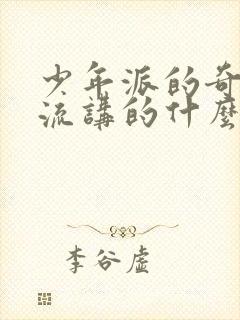 少年派的奇
流講的什麼
李谷虛